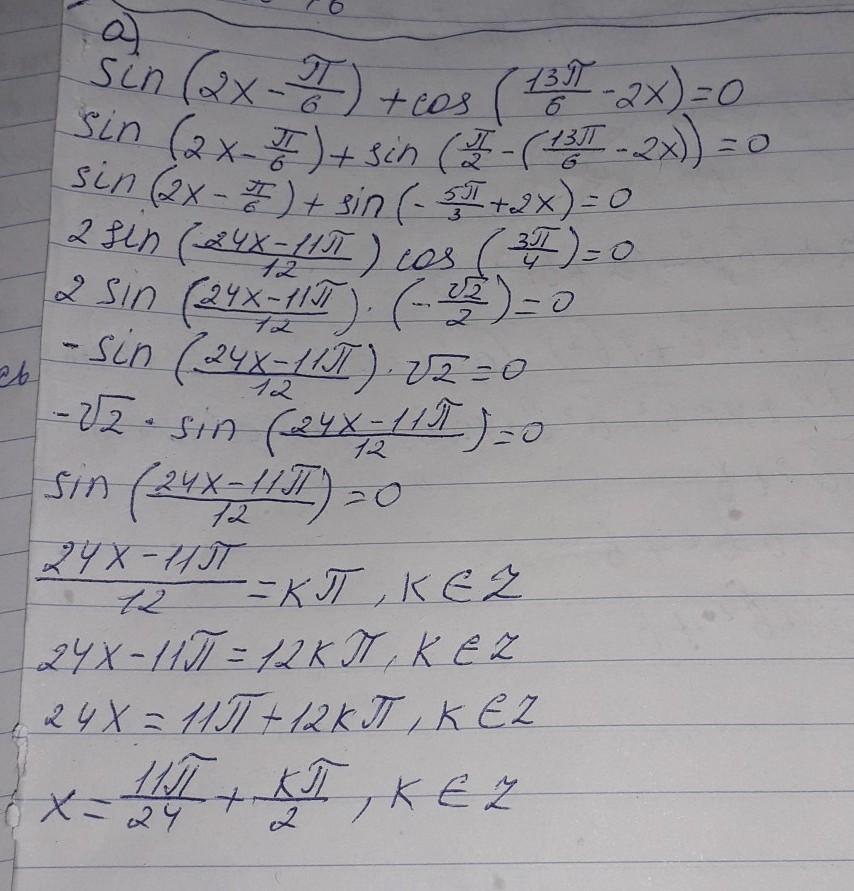 а)
sin (2x - π/6) + cos (13π/6 - 2x) = 0
sin (2x - π/6) + sin (π/2 - (13π/6 - 2x)) = 0
sin (2x - π/6) + sin (- 5π/3 + 2x) = 0
2 sin ((24x - 11π)/12) cos (3π/4) = 0
2 sin ((24x - 11π)/12) · (- √2/2) = 0
- sin ((24x - 11π)/12) · √2 = 0
- √2 · sin ((24x - 11π)/12) = 0
sin ((24x - 11π)/12) = 0
(24x - 11π)/12 = kπ, k ∈ Z
24x - 11π = 12kπ, k ∈ Z
24x = 11π + 12kπ, k ∈ Z
x = 11π/24 + kπ/2, k ∈ Z